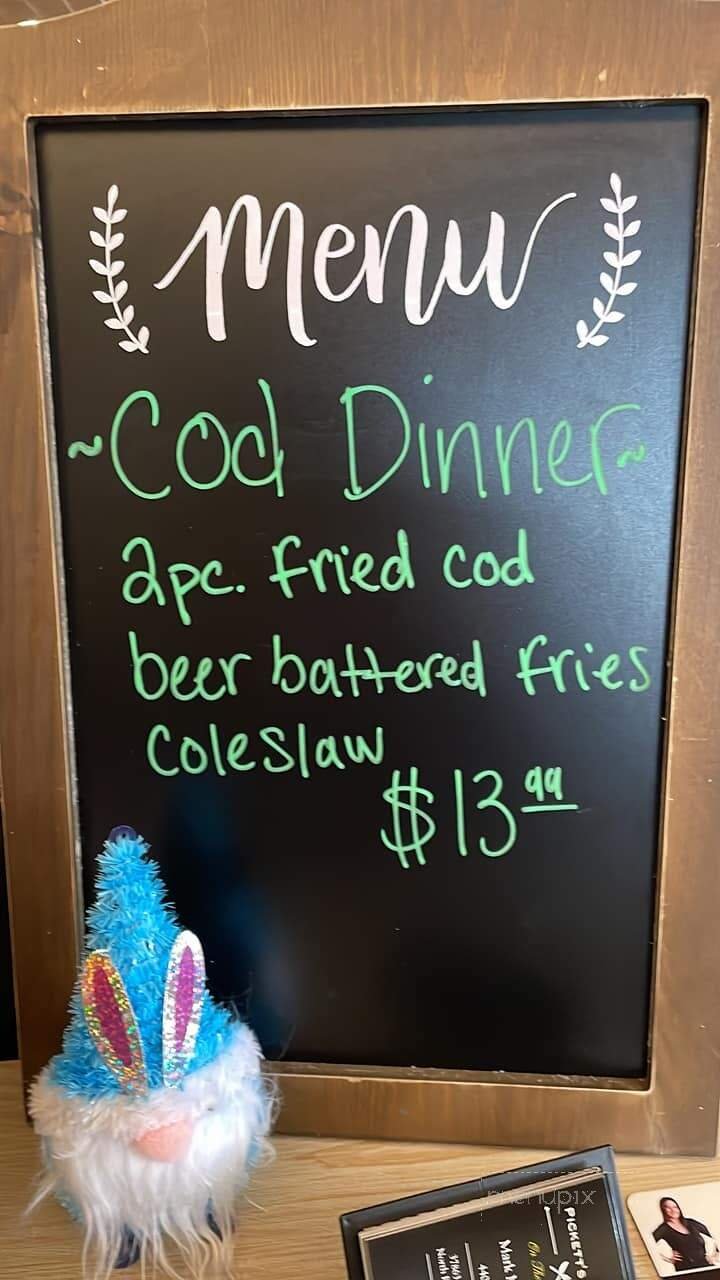 Menu
~Cod Dinner~
2pc. fried cod
beer battered fries
Coleslaw
$13.99
menupix
PICKETT'S
On The
Mark